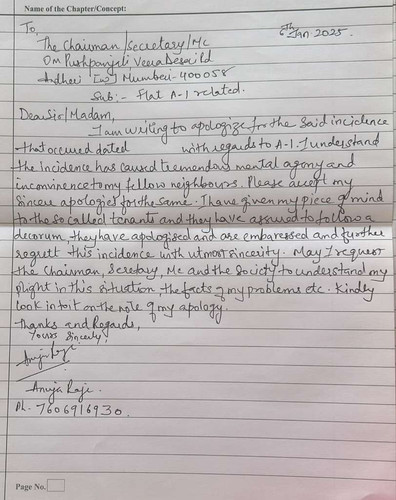 Name of the Chapter/Concept:
To, 6th Jan. 2025.
The Chaiman/secretary/Mc
Om Pushpanjali Veera Desai Rd
Andheri [W] Mumbai-400058
Sub:- Flat A-1 related.
Dear Sir/Madam,
I am writing to apologize for the said incidence
that occured dated with regards to A-1. I understand
the incidence has caused tremendous mental agony and
inconvinence to my fellow neighbours. Please accept my
sincere apologies for the same. I have given my piece of mind
to the so called tenants and they have assured to follow a
decorum, they have apologised and are embaressed and further
regrett this incidence with utmost sincerity. May I request
the Chaiman, Secretary, Mc and the Society to understand my
plight in this situation, the facts of my problems etc. Kindly
look into it on the note of my apology.
Thanks and Regards,
Yours Sincerely,
Anuja Raje.
Ph. - 7606916930.
Page No.